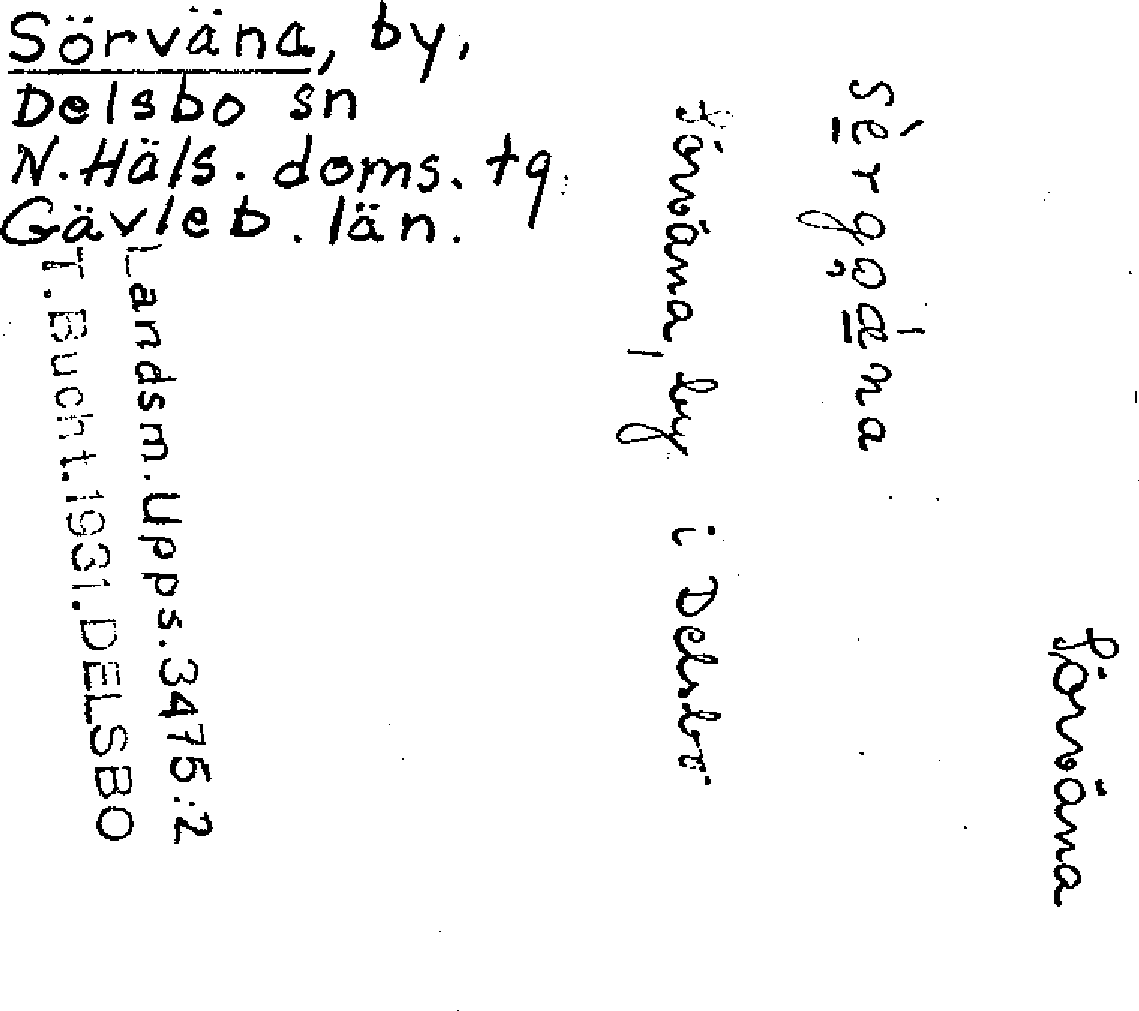 Sörväna, by,
Delsbo sn
N.Häls. doms. tg
Gävleb. län.
Landsm.Upps.3475:2
T.Bucht.1931.DELSBO
Sörväna
Sörväna, by i Delsbo